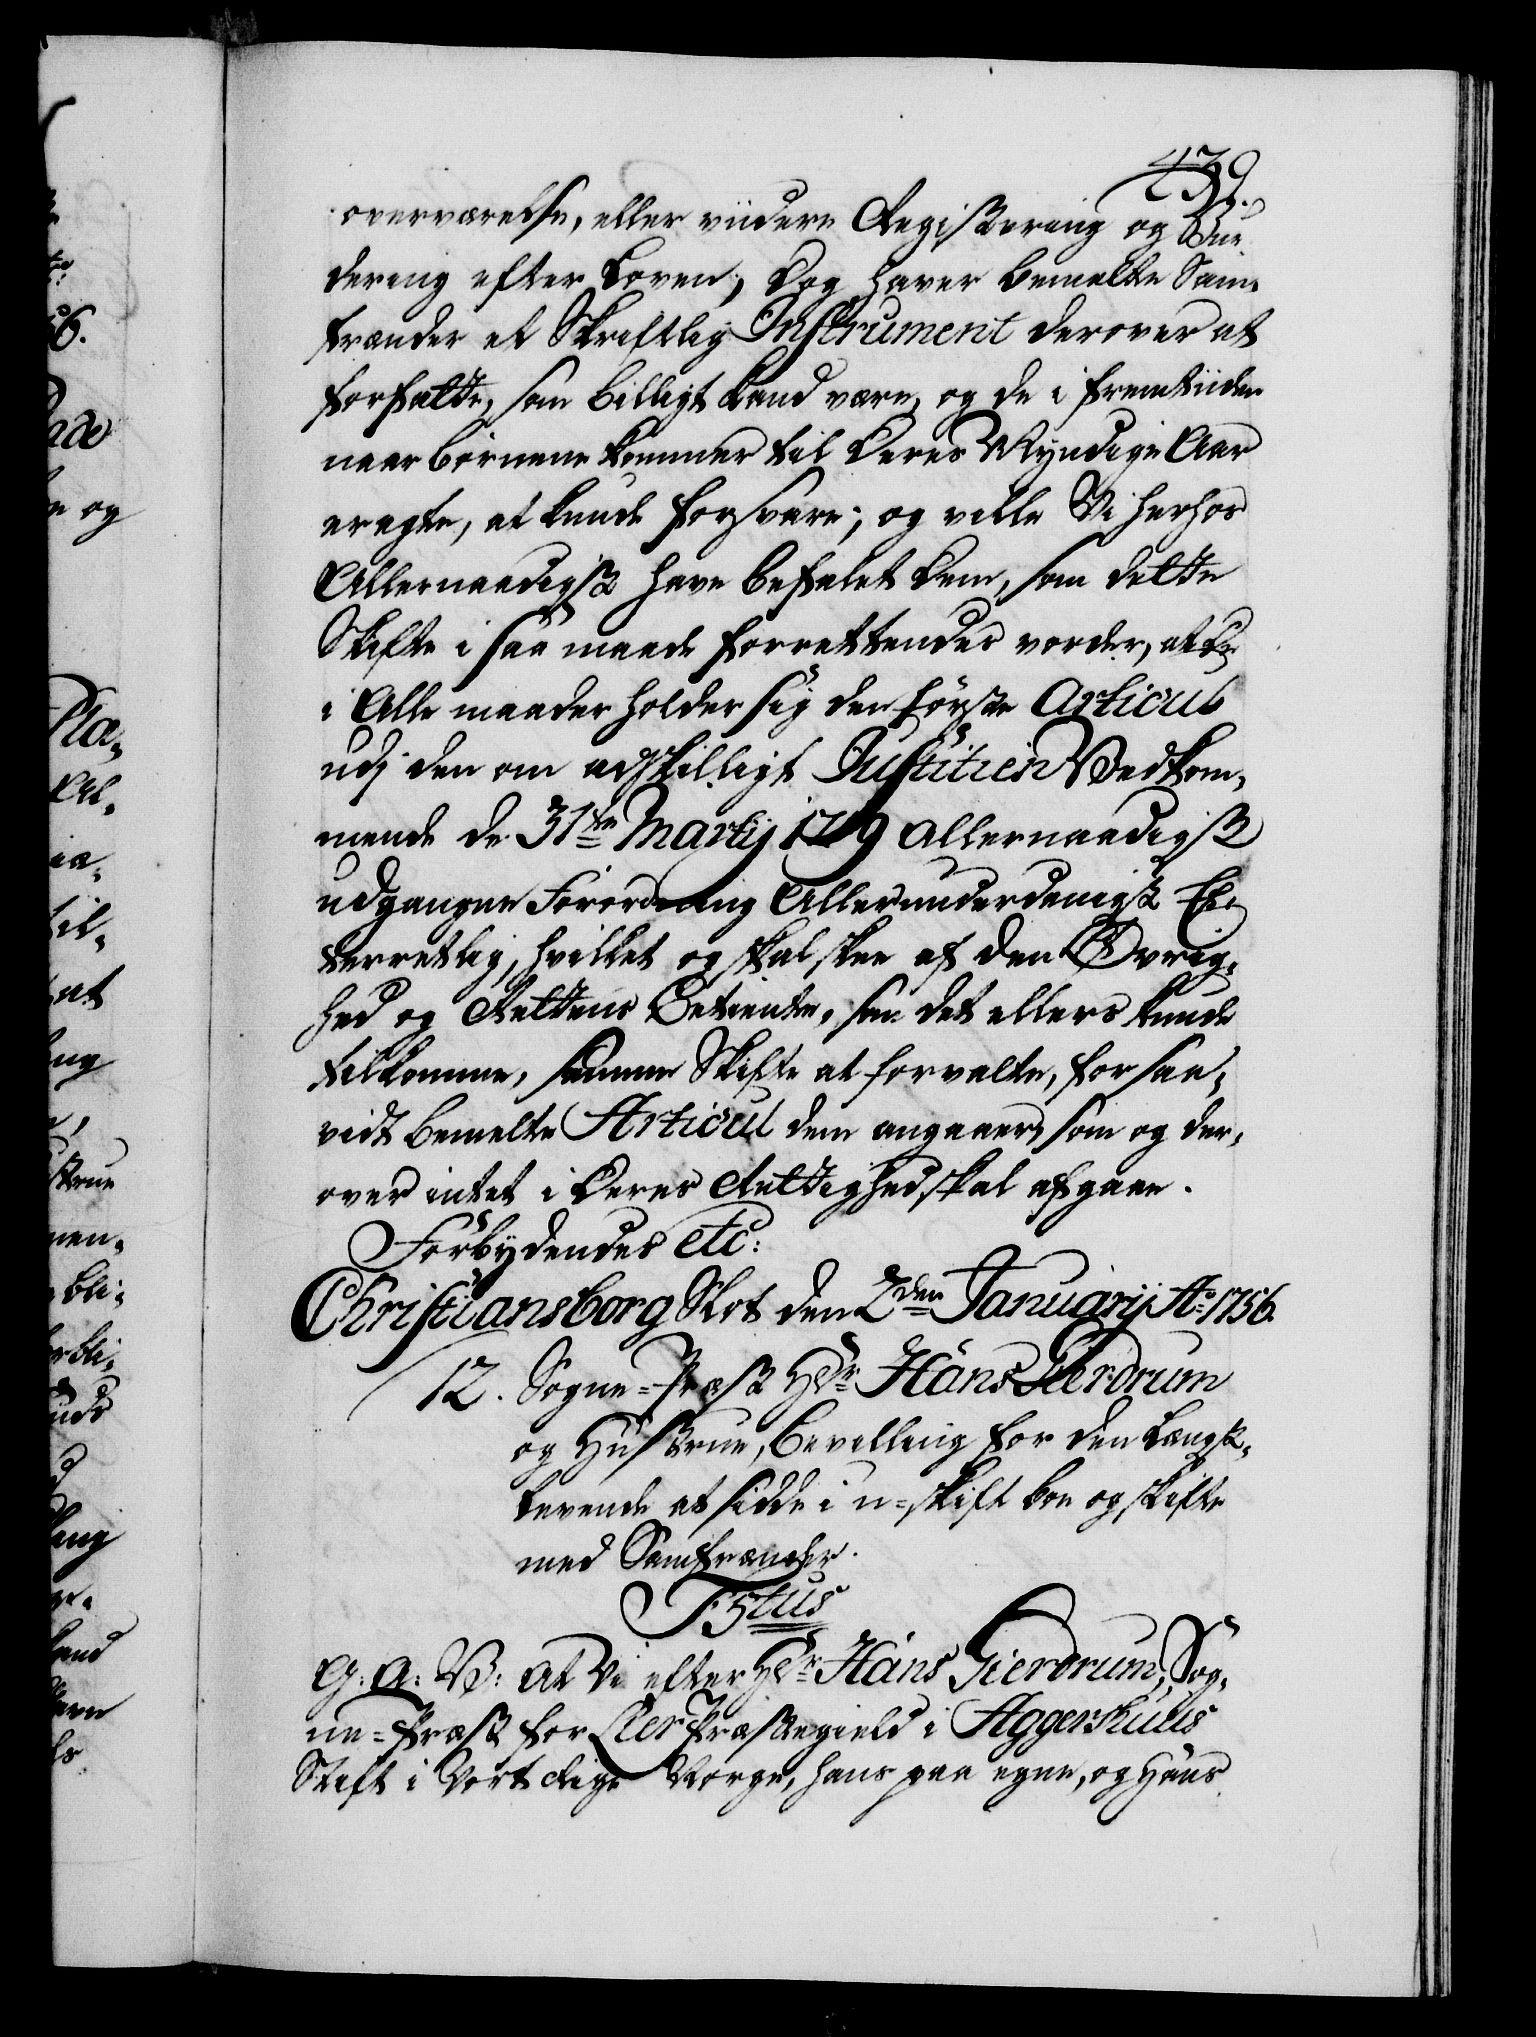 439.
overværelse, eller viidere Registering og Vur
dering efter Loven; Dog haver bemelte Sam-
frænder et Skriftlig Instrument derover at
forfatte, som billigt kand være, og de i fremtiiden
naar börnene kommer til deres Myndige Aar
eragte, at kunde forsvare; og ville Vi herhos
Allernaadigst have befalet dem, som dette
Skifte i saa maade forrettendes vorder, at de
i Alle maader holder sig den förste Articul
udj den om adskilligt Justitien Vedkom-
mende de 31te Martij 1719 allernaadigst
udgangne Forordning Allerunderdanigst Ef-
terretlig, hvilket og skal skee af den Øvrig-
hed og Rettens Betiente, som det ellers kunde
tilkomme, samme Skifte at forvalte, for saa-
vidt bemelte Articul dem angaaer, som og der-
over intet i deres Rettighed skal afgaae.
Forbydendes etc:
Christiansborg Slot den 2den Januarij Ao 1756.
12. Sogne-Præst Hr Hans Gierdrum
og Hustrue, bevilling for den Længst-
levende at sidde i u-skift boe og skifte
med Samfrænder.
F5tus
G: A: V: at Vi efter Hr Hans Gierdrum, Sog-
ne-Præst for Lier Præstegield i Aggershuus
Stift i Vort Rige Norge, hans paa egne, og Hans